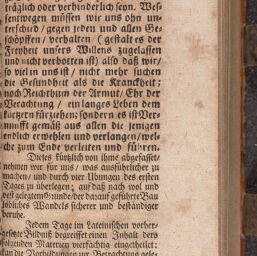 träglich oder verhinderlich seyn. Wes-
sentwegen müssen wir uns ohn un-
terschied / gegen jeden und allen Ge-
schöpffen / verhalten ( gestalt es der
Freyheit unsers Willens zugelassen
und nicht verbotten ist) also daß wir/
so viel in uns ist / nicht mehr suchen
die Gesundheit als die Kranckheit;
noch Reichthum der Armut/ Ehr der
Verachtung / ein langes Leben dem
kürtzern fürziehen; sondern es ist Ver-
nunfft gemäß aus allen die jenigen
endlich erwehlen und verlangen/ wel-
che zum Ende verleiten und führen.
Dieses kürtzlich von ihme abgefasset/
nehmen wir für uns / was ausführlicher zu
machen/ und durch vier Ubungen des ersten
Tages zu überlegen; auf daß nach wol und
vest gelegtem Grunde/ der darauf geführte Bau
löbliches Wandels sicherer und beständiger
beruhe.
Jedem Tage im Lateinischen vorher-
gesetzte Bildniß begreiffet einen Inhalt derer
folgenden Materien vierfächtig eingetheilet:
an die Vorbildungen zur Betrachtung gele-